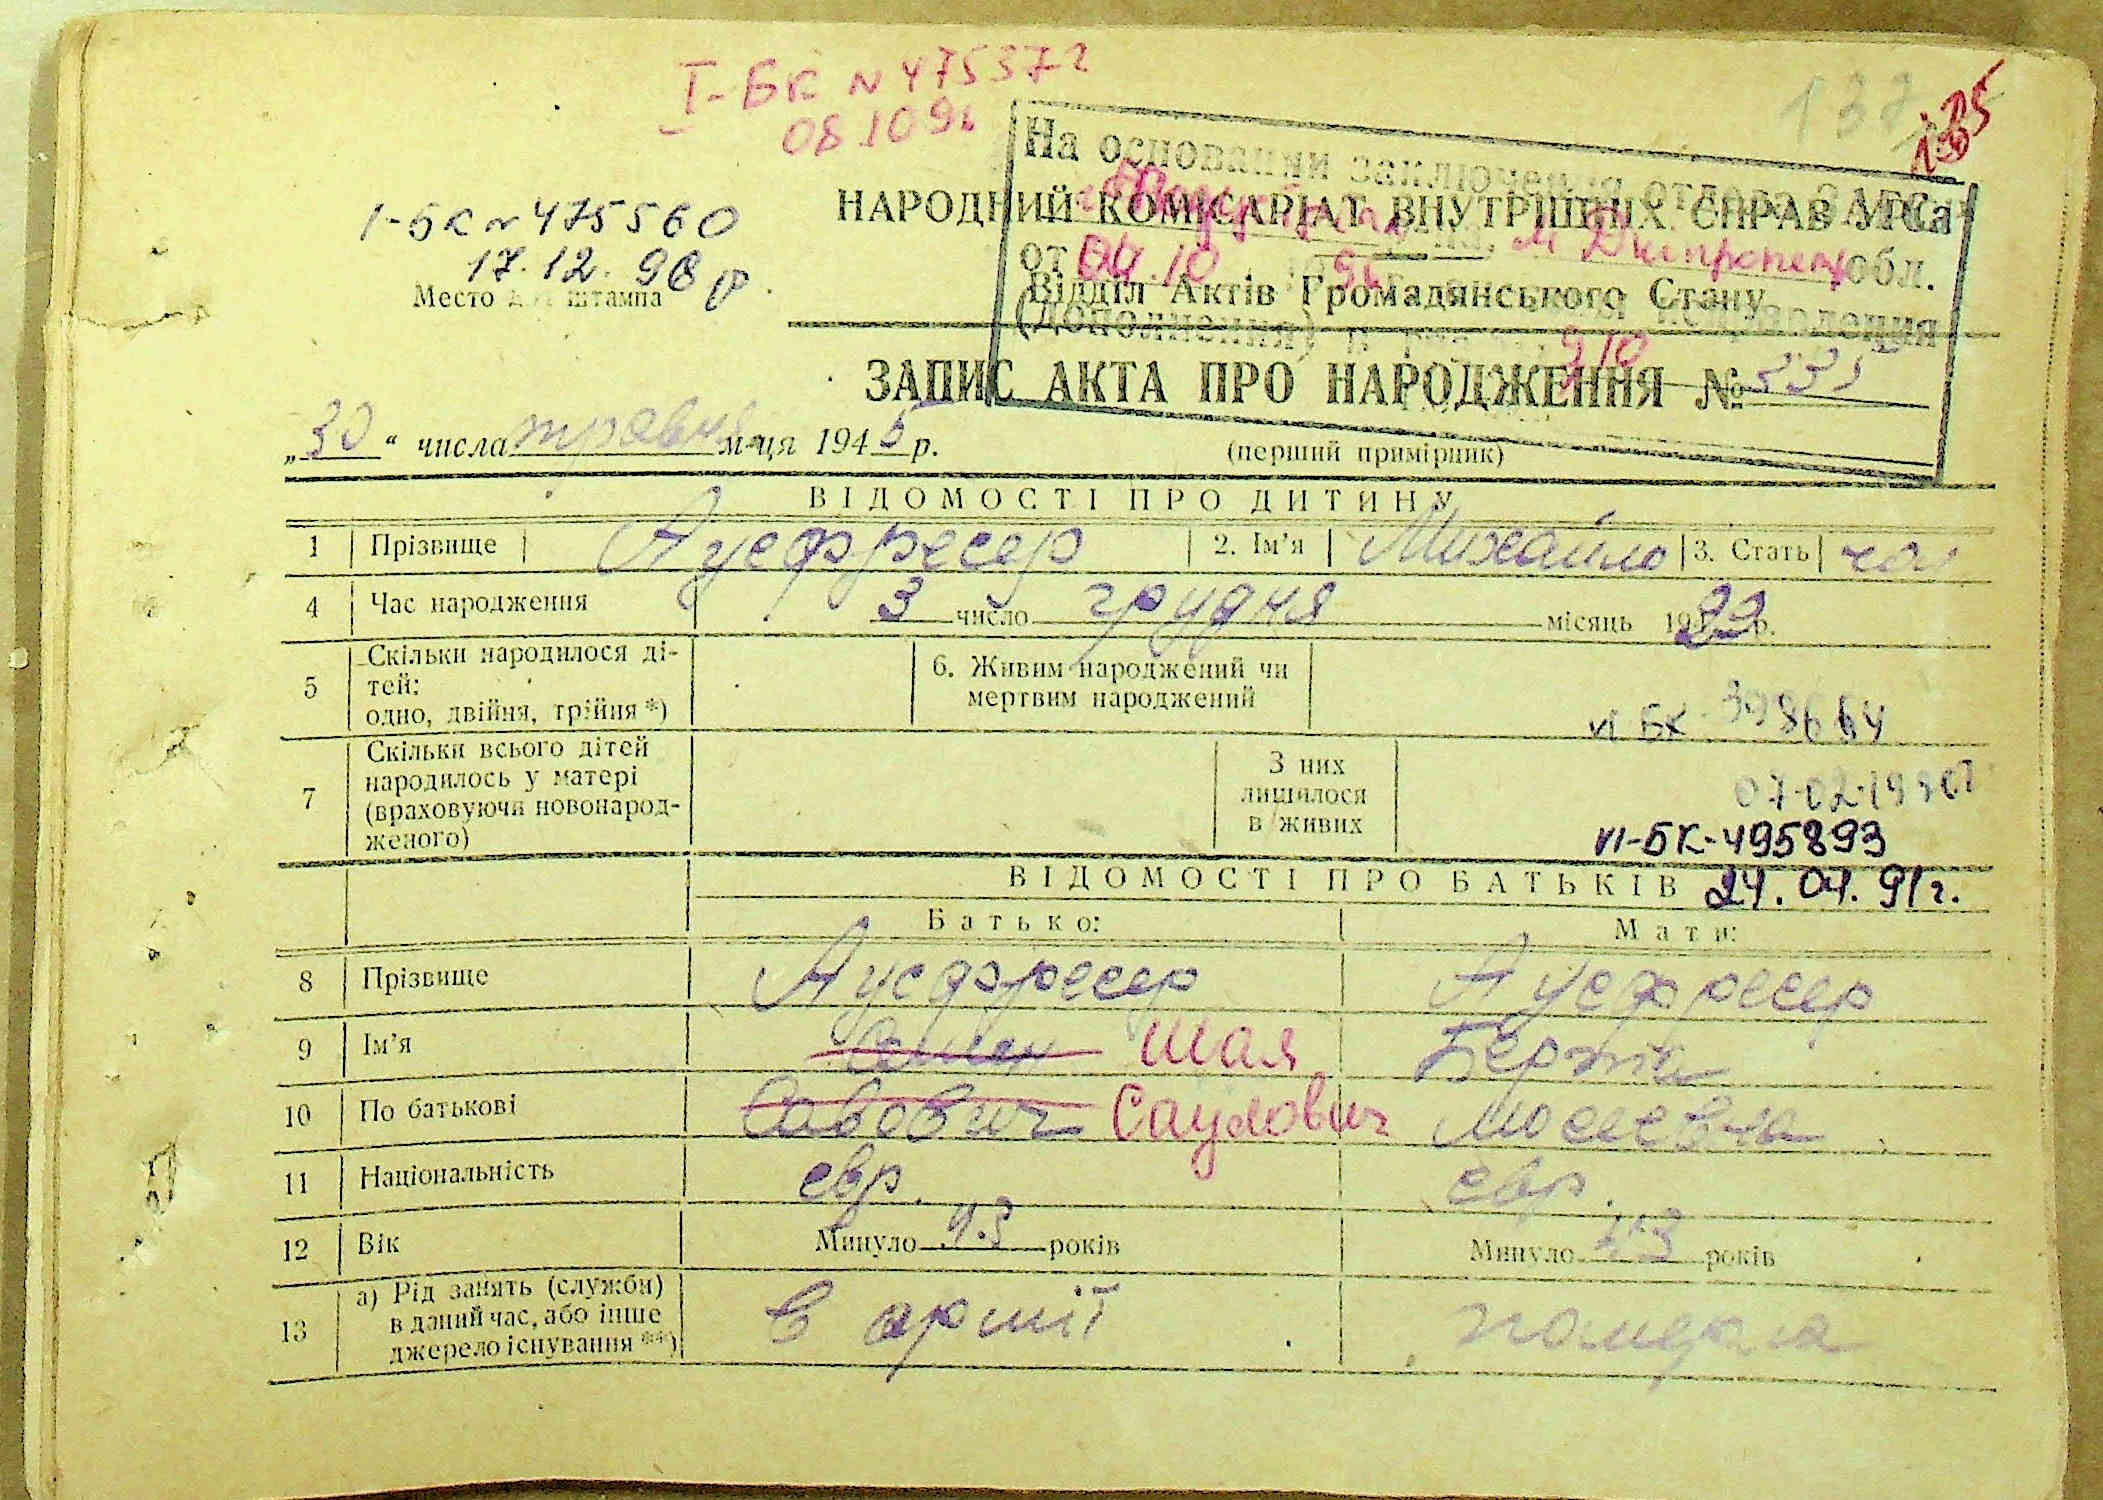 І-БК N 475372
08 10 96
135
На основании заключения отдела ЗАГСа
І-БК N 475560
НАРОДНИЙ КОМІСАРІАТ ВНУТРІШНІХ СПРАВ УРСР
17.12.96 р.
от 04.10 1996 м Дніпропет обл.
Место для штампа
Відділ Актів Громадянського Стану
(дополнения) 910
ЗАПИС АКТА ПРО НАРОДЖЕННЯ № 335
„30“ числа травня м-ця 1945 р.
(перший примірник)
ВІДОМОСТІ ПРО ДИТИНУ
1 Прізвище Аусфресер 2. Ім’я Михайло 3. Стать чол
4 Час народження 3 число грудня місяць 1923 р.
5 Скільки народилося ді-
тей:
одно, двійня, трійня *)
6. Живим народжений чи
мертвим народжений
VI БК 398664
7 Скільки всього дітей
народилось у матері
(враховуючи новонарод-
женого)
З них
лишилося
в живих
07-02-1990
VI-БК-495893
ВІДОМОСТІ ПРО БАТЬКІВ 24.04.91г.
Батько: Мати:
8 Прізвище Аусфресер Аусфресер
9 Ім’я Шая Берта
10 По батькові Савович Саулович Мосеевна
11 Національність євр. євр.
12 Вік Минуло 43 років Минуло 43 років
13 а) Рід занять (служби)
в даний час, або інше
джерело існування **)
в армії померла